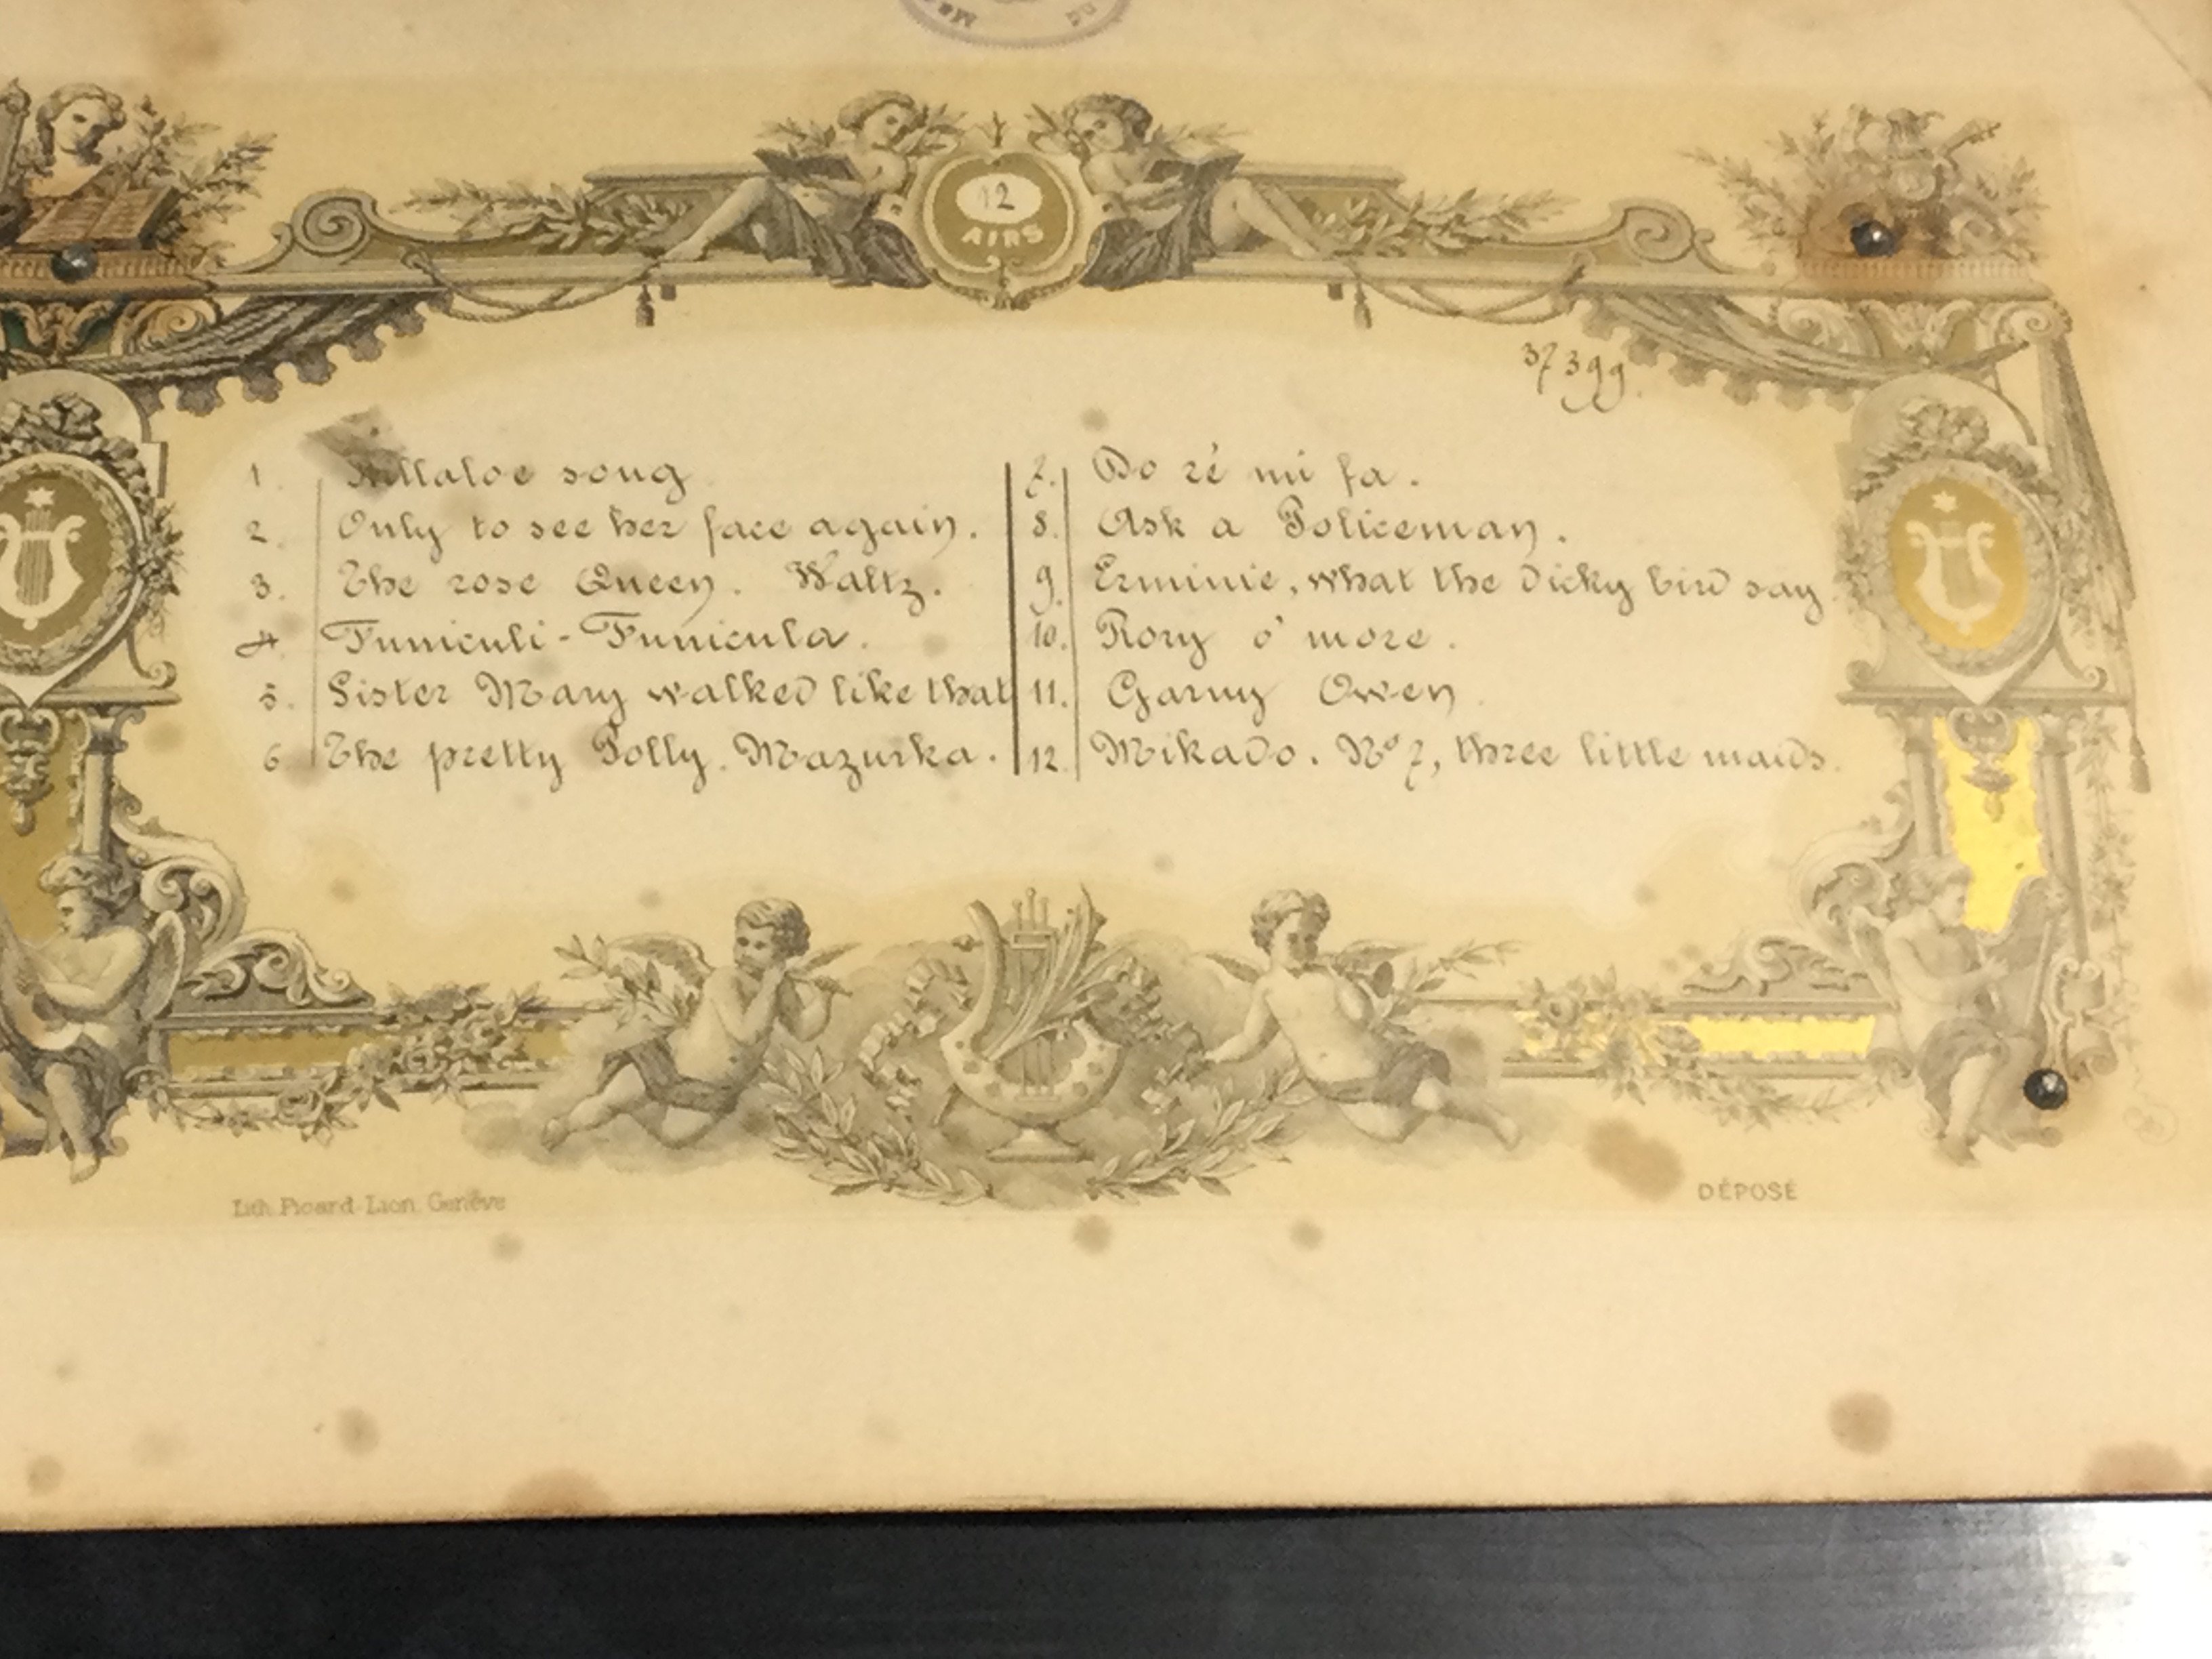 12
AIRS
37399.
1. Killaloe song
2. Only to see her face again.
3. The rose Queen. Waltz.
4. Funiculi-Funicula.
5. Sister Mary walked like that
6 The pretty Polly. Mazurka.
7. Do ré mi fa.
8. Ask a Policeman.
9. Erminie, what the dicky bird say
10. Rory o' more.
11. Garny Owen
12. Mikado. Nº 7, three little maids.
Lith. Picard-Lion. Genève
DÉPOSÉ